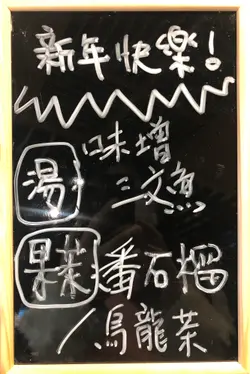 新年快樂!
湯 味增
三文魚
果茶 番石榴
/烏龍茶